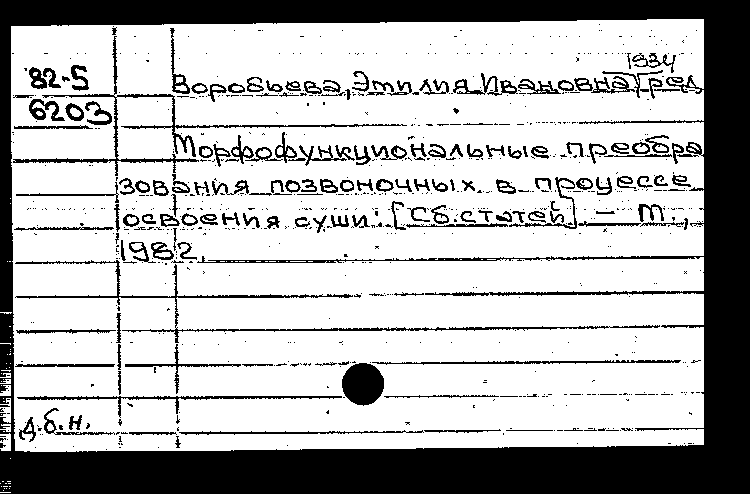 1934
82-5 Воробьева, Эмилия Ивановна, ред
6203
Морфофункциональные преобра
зования позвоночных в процессе
освоения суши: [Сб. статей] - М.,
1982.
д.б.н.